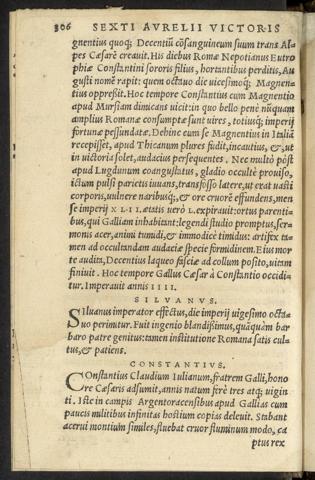 306 SEXTI AVRELII VICTORIS
gnentius quoq; Decentiũ cõsanguineum suum trans Al-
pes Cæsarẽ creauit. His diebus Romæ Nepotianus Eutro
phiæ Constantini sororis filius, hortantibus perditis, Au
gusti nomẽ rapit: quem octauo die uicesimoq; Magnen-
tius oppreßit. Hoc tempore Constantius cum Magnentio
apud Mursiam dimicans uicit: in quo bello penè nũquam
amplius Romanæ consumptæ sunt uires, totiusq; imperij
fortunæ pessundatæ. Dehinc cum se Magnentius in Italiã
recepisset, apud Thicanum plures fudit, incautius, & ut
in uictoria solet, audacius persequentes. Nec multò pòst
apud Lugdunum coangustatus, gladio occultè prouiso,
ictum pulsi parietis iuuans, transfosso latere, ut erat uasti
corporis, uulnere naribusq;, & ore cruorẽ effundens, men
se imperij XLII. ætatis uerò L. expirauit: ortus parenti-
bus, qui Galliam inhabitant: legendi studio promptus, ser-
monis acer, animi tumidi, & immodicè timidus: artifex ta-
men ad occultandam audaciæ specie formidinem. Eius mor
te audita, Decentius laqueo fasciæ ad collum posito, uitam
finiuit. Hoc tempore Gallus Cæsar à Constantio occidi-
tur. Imperauit annis IIII.
SILVANVS.
Siluanus imperator effectus, die imperij uigesimo octa-
uo perimitur. Fuit ingenio blandißimus, quãquàm bar
baro patre genitus: tamen institutione Romana satis cul-
tus, & patiens.
CONSTANTIVS.
Constantius Claudium Iulianum, fratrem Galli, hono
re Cæsaris adsumit, annis natum ferè tres atq; uigin
ti. Iste in campis Argentoracensibus apud Gallias cum
paucis militibus infinitas hostium copias deleuit. Stabant
acerui montium similes, fluebat cruor fluminum modo, ca
ptus rex